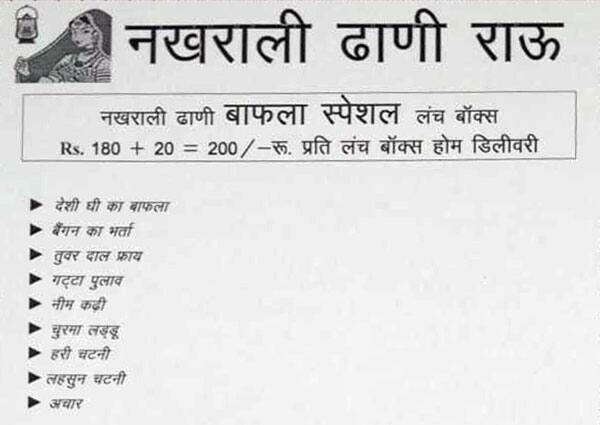 नखराली ढाणी राऊ
नखराली ढाणी बाफला स्पेशल लंच बॉक्स
Rs. 180 + 20 = 200/–रू. प्रति लंच बॉक्स होम डिलीवरी
देशी घी का बाफला
बैंगन का भर्ता
तुवर दाल फ्राय
गट्टा पुलाव
नीम कढ़ी
चुरमा लड्डू
हरी चटनी
लहसुन चटनी
अचार